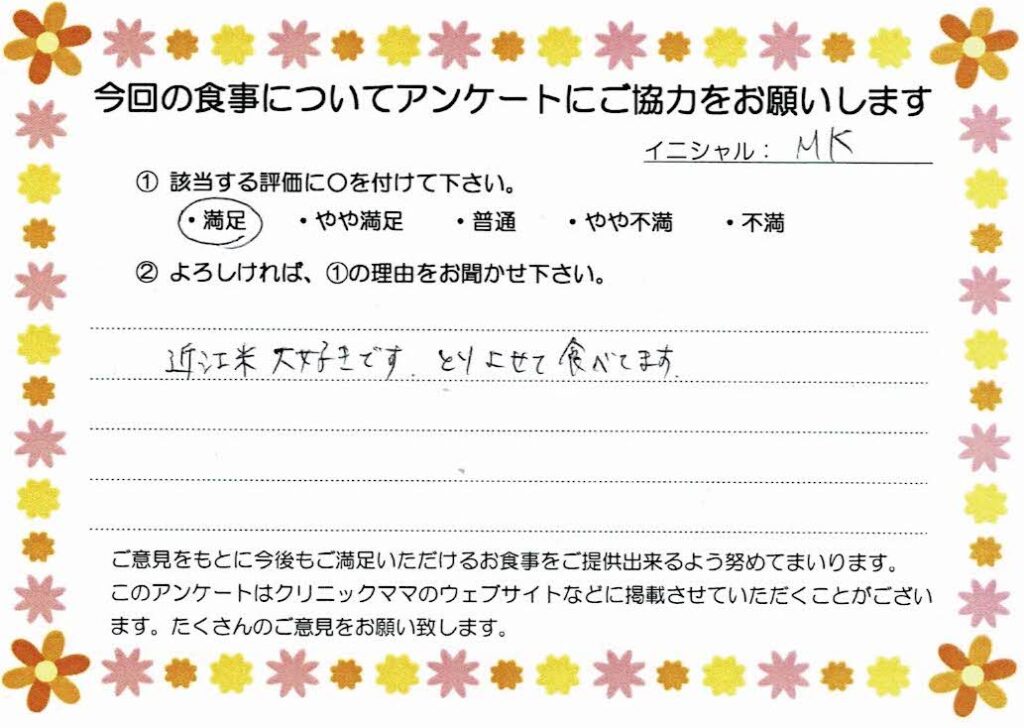 今回の食事についてアンケートにご協力をお願いします
イニシャル： MK
① 該当する評価に〇を付けて下さい。
・満足 ・やや満足 ・普通 ・やや不満 ・不満
② よろしければ、①の理由をお聞かせ下さい。
近江米 大好きです. とりよせて 食べてます.
ご意見をもとに今後もご満足いただけるお食事をご提供出来るよう努めてまいります。
このアンケートはクリニックママのウェブサイトなどに掲載させていただくことがござい
ます。たくさんのご意見をお願い致します。